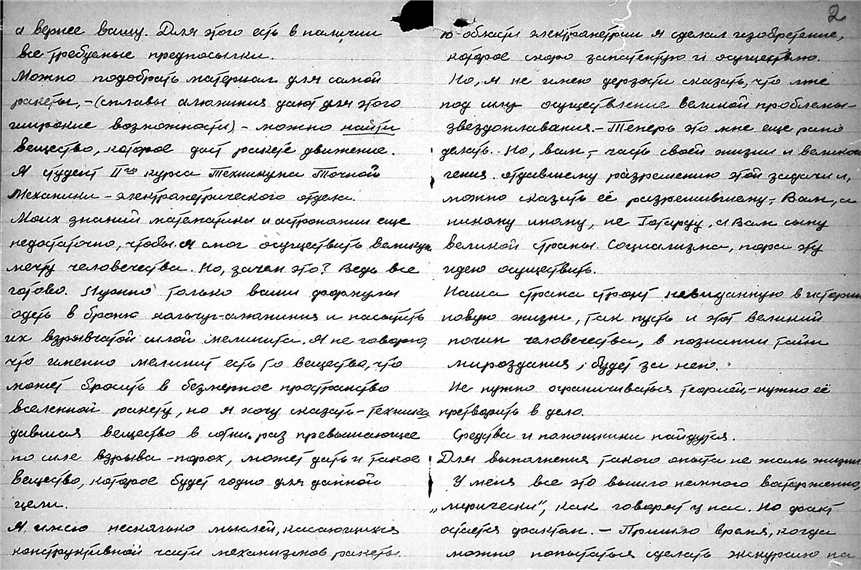 а вернее вашу. Для этого есть в наличии
все требуемые предпосылки.
Можно подобрать материал для самой
ракеты, – (сплавы алюминия дают для этого
широкие возможности) – можно найти
вещество, которое даст ракете движение.
Я студент II го курса Техникума Точной
Механики – электрометрического отдела.
Моих знаний математики и астрономии еще
недостаточно, чтобы я смог осуществить великую
мечту человечества. Но, зачем это? Ведь все
готово. Нужно только ваши формулы
одеть в броню кольчуг-алюминия и насытить
их взрывчатой силой мелинита. Я не говорю,
что именно мелинит есть то вещество, что
может бросить в безмерное пространство
вселенной ракету, но я хочу сказать – техника,
давшая вещество в сотни раз превышающее
по силе взрыва – порох, может дать и такое
вещество, которое будет годно для данной
цели.
Я имею несколько мыслей, касающихся
конструктивной части механизмов ракеты.
2
области электрометрии я сделал изобретение,
которое скоро запатентую и осуществлю.
Но, я не имею дерзости сказать, что мне
под силу осуществление великой проблемы-
звездоплавания. – Теперь это мне еще рано
делать. Но, вам, – часть своей жизни и великого
гения отдавшему разрешению этой задачи и,
можно сказать её разрешившему, – Вам, а
никому иному, не Годарду, а Вам сыну
великой страны Социализма, пора эту
идею осуществить.
Наша страна строит невиданную в истории
новую жизнь, так пусть и этот великий
почин человечества, в познании тайн
мироздания, будет за нею.
Не нужно ограничиваться теорией, – нужно её
претворить в дело.
Средства и помощники найдутся.
Для выполнения такого опыта не жаль жизни
У меня все это вышло немного восторженно,
„лирически“, как говорят у нас. Но факт
остается фактом. – Пришло время, когда
можно попытаться сделать экскурсию на